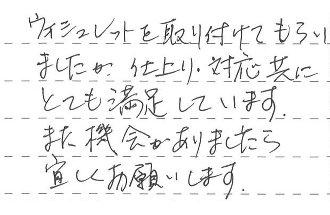 ウォシュレットを取り付けてもらい
ましたが 仕上り・対応共に
とても満足しています.
また機会がありましたら
宜しくお願いします.